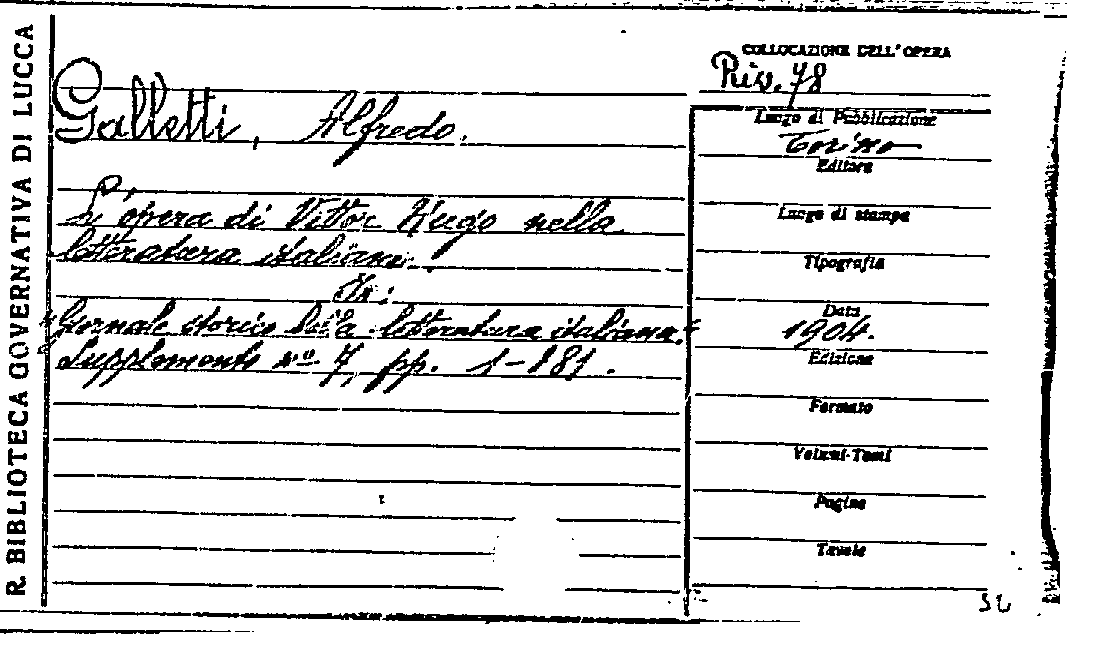 R. BIBLIOTECA GOVERNATIVA DI LUCCA
Galletti, Alfredo.
L'opera di Vittor Hugo nella
letteratura italiana.
In:
"Giornale storico della letteratura italiana."
Supplemento nº 7, pp. 1-181.
COLLOCAZIONE DELL'OPERA
Riv. 78
Luogo di Pubblicazione
Torino
Editore
Luogo di stampa
Tipografia
Data
1904.
Edizione
Formato
Volumi-Tomi
Pagine
Tavole